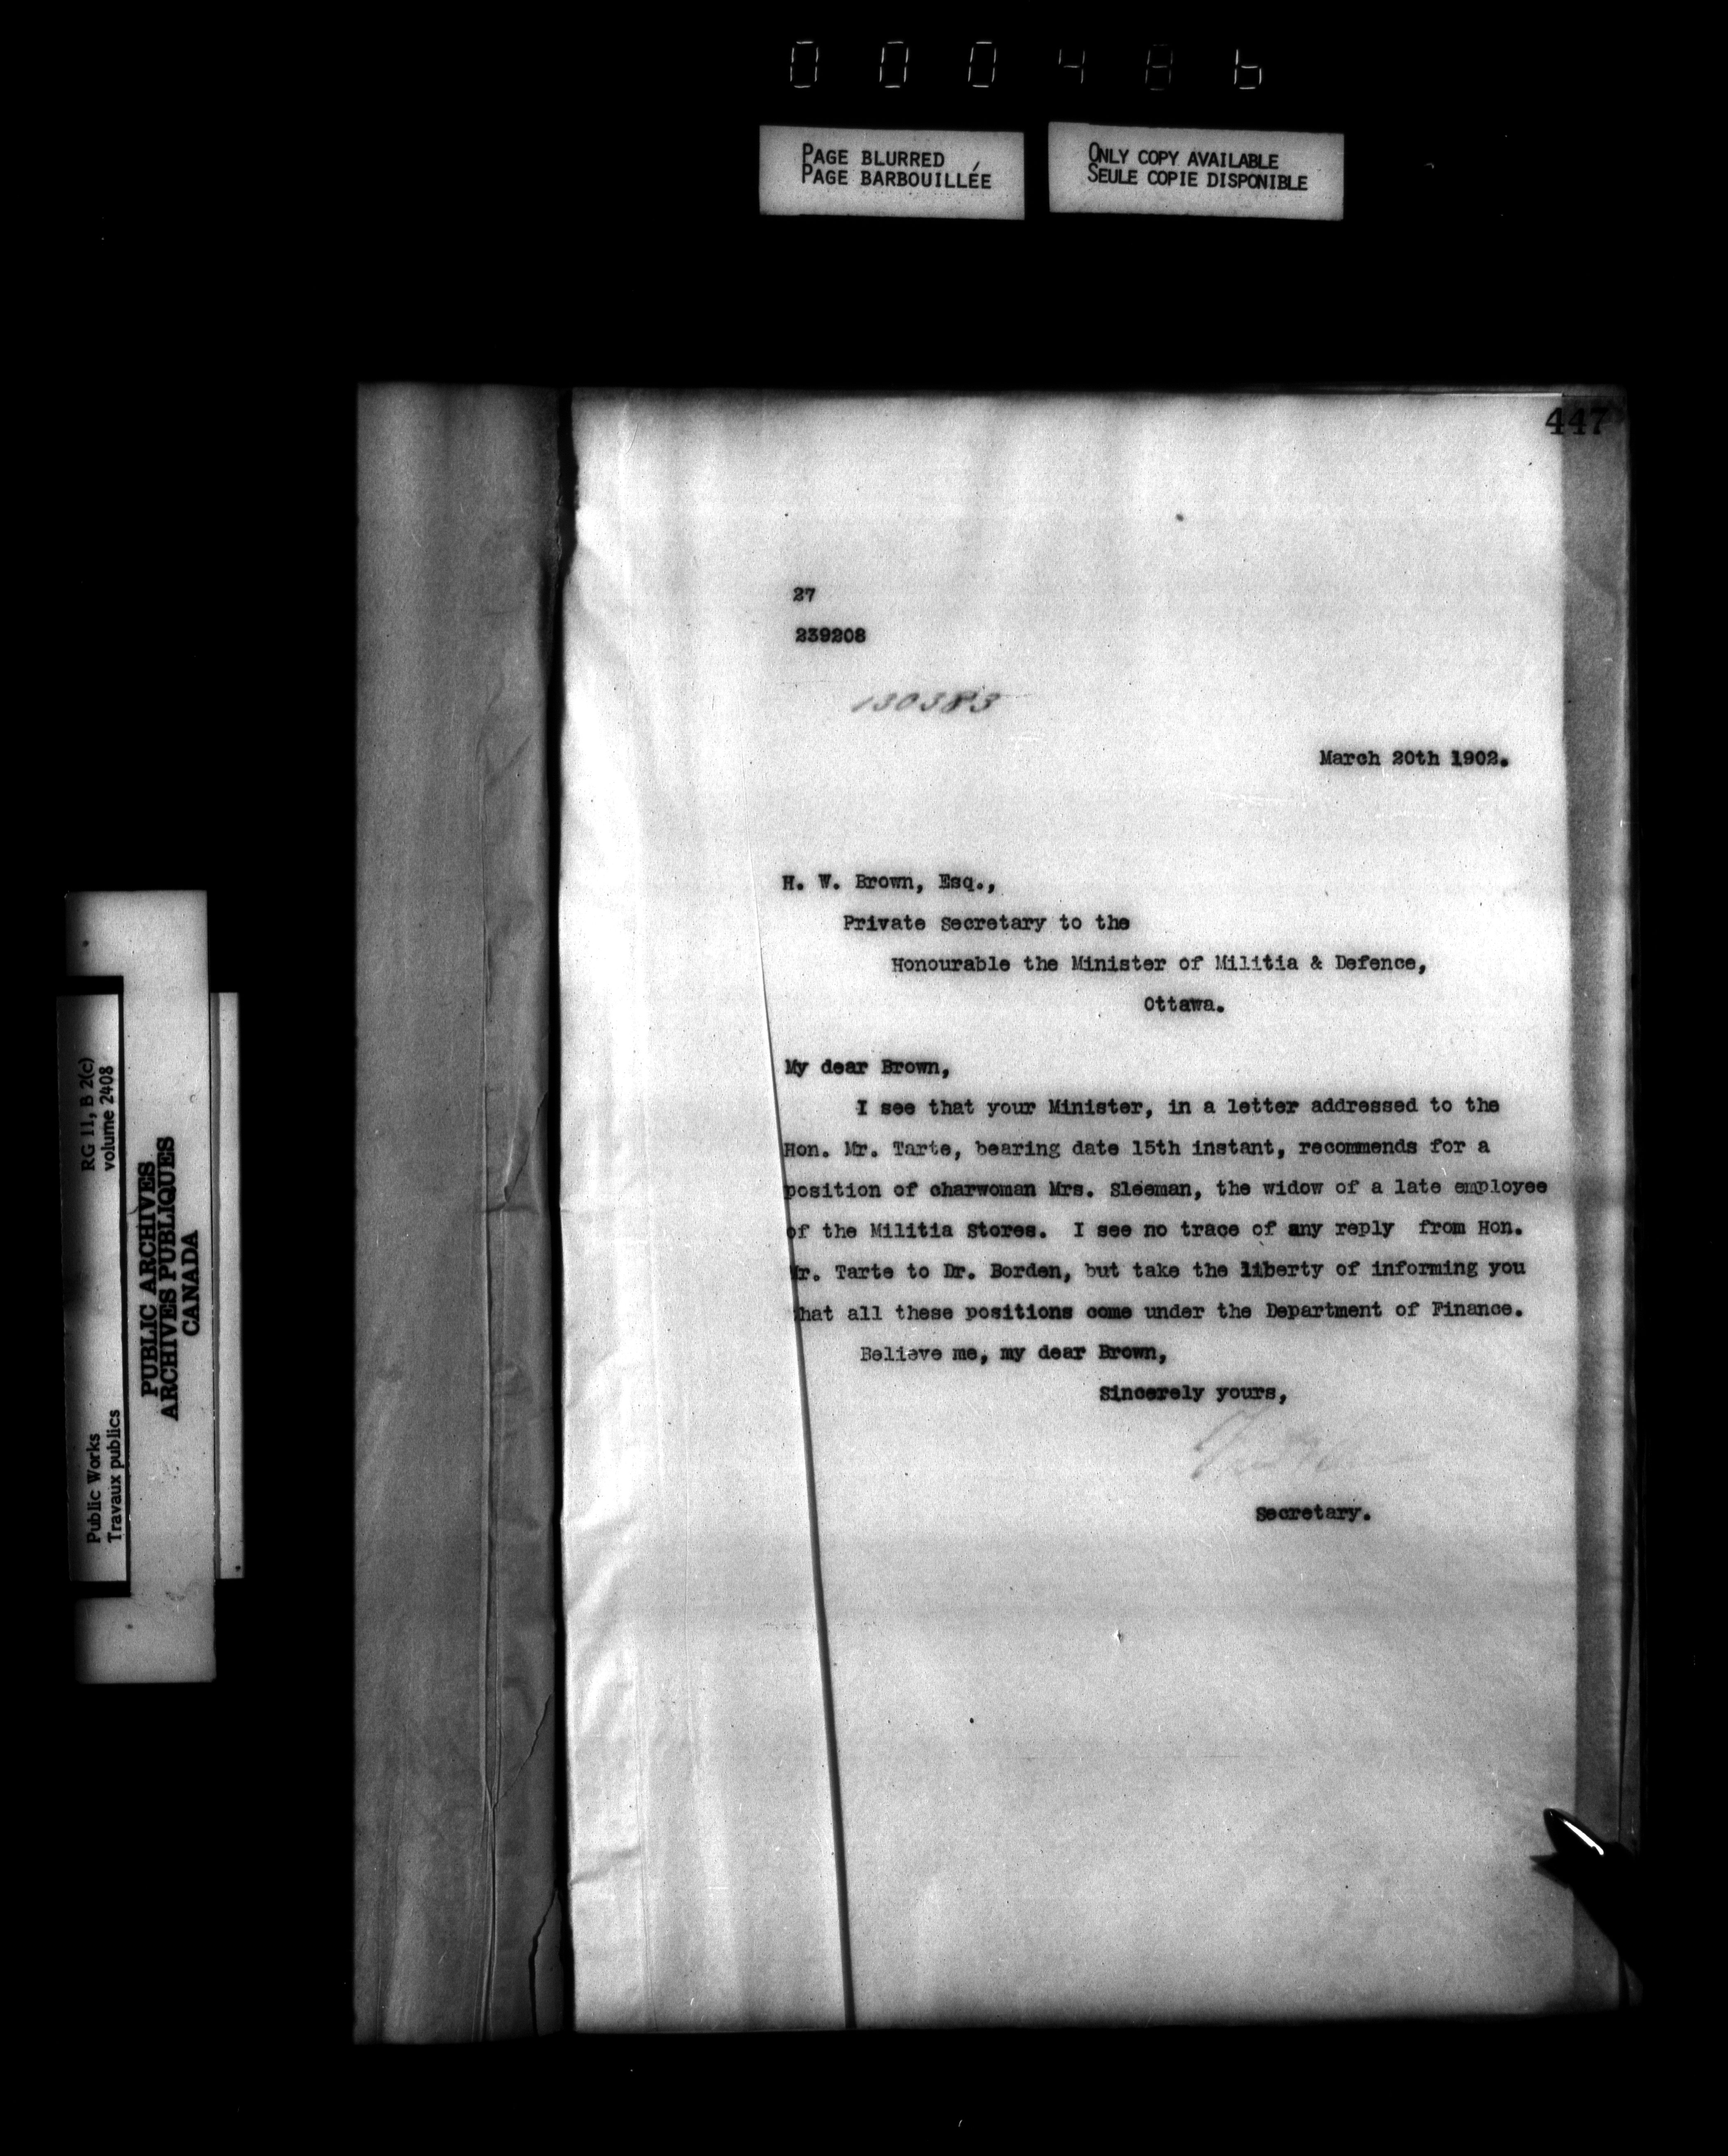 000486
PAGE BLURRED
PAGE BARBOUILLÉE
ONLY COPY AVAILABLE
SEULE COPIE DISPONIBLE
447
27
239208
130383
March 20th 1902.
H. W. Brown, Esq.,
Private Secretary to the
Honourable the Minister of Militia & Defence,
Ottawa.
My dear Brown,
I see that your Minister, in a letter addressed to the
Hon. Mr. Tarte, bearing date 15th instant, recommends for a
position of charwoman Mrs. Sleeman, the widow of a late employee
of the Militia Stores. I see no trace of any reply from Hon.
Mr. Tarte to Dr. Borden, but take the liberty of informing you
that all these positions come under the Department of Finance.
Believe me, my dear Brown,
Sincerely yours,
Secretary.
RG 11, B 2(c)
volume 2408
Public Works
Travaux publics
PUBLIC ARCHIVES
ARCHIVES PUBLIQUES
CANADA